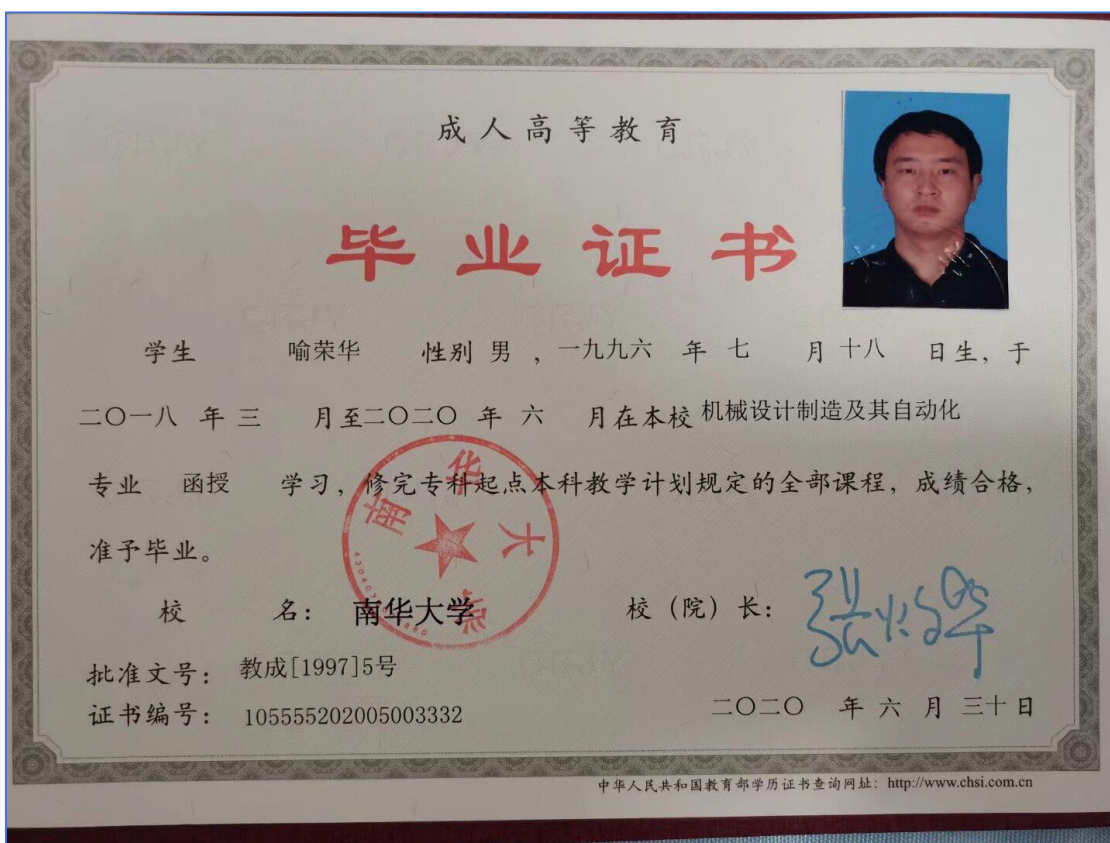 成人高等教育
毕业证书
学生 喻荣华 性别 男 ，一九九六 年 七 月 十八 日生，于
二〇一八 年 三 月至二〇二〇 年 六 月在本校 机械设计制造及其自动化
专业 函授 学习，修完专科起点本科教学计划规定的全部课程，成绩合格，
准予毕业。
南华大学
校 名： 南华大学 校（院）长：
批准文号： 教成[1997]5号
证书编号： 105555202005003332
二〇二〇 年 六 月 三十 日
中华人民共和国教育部学历证书查询网址：http://www.chsi.com.cn